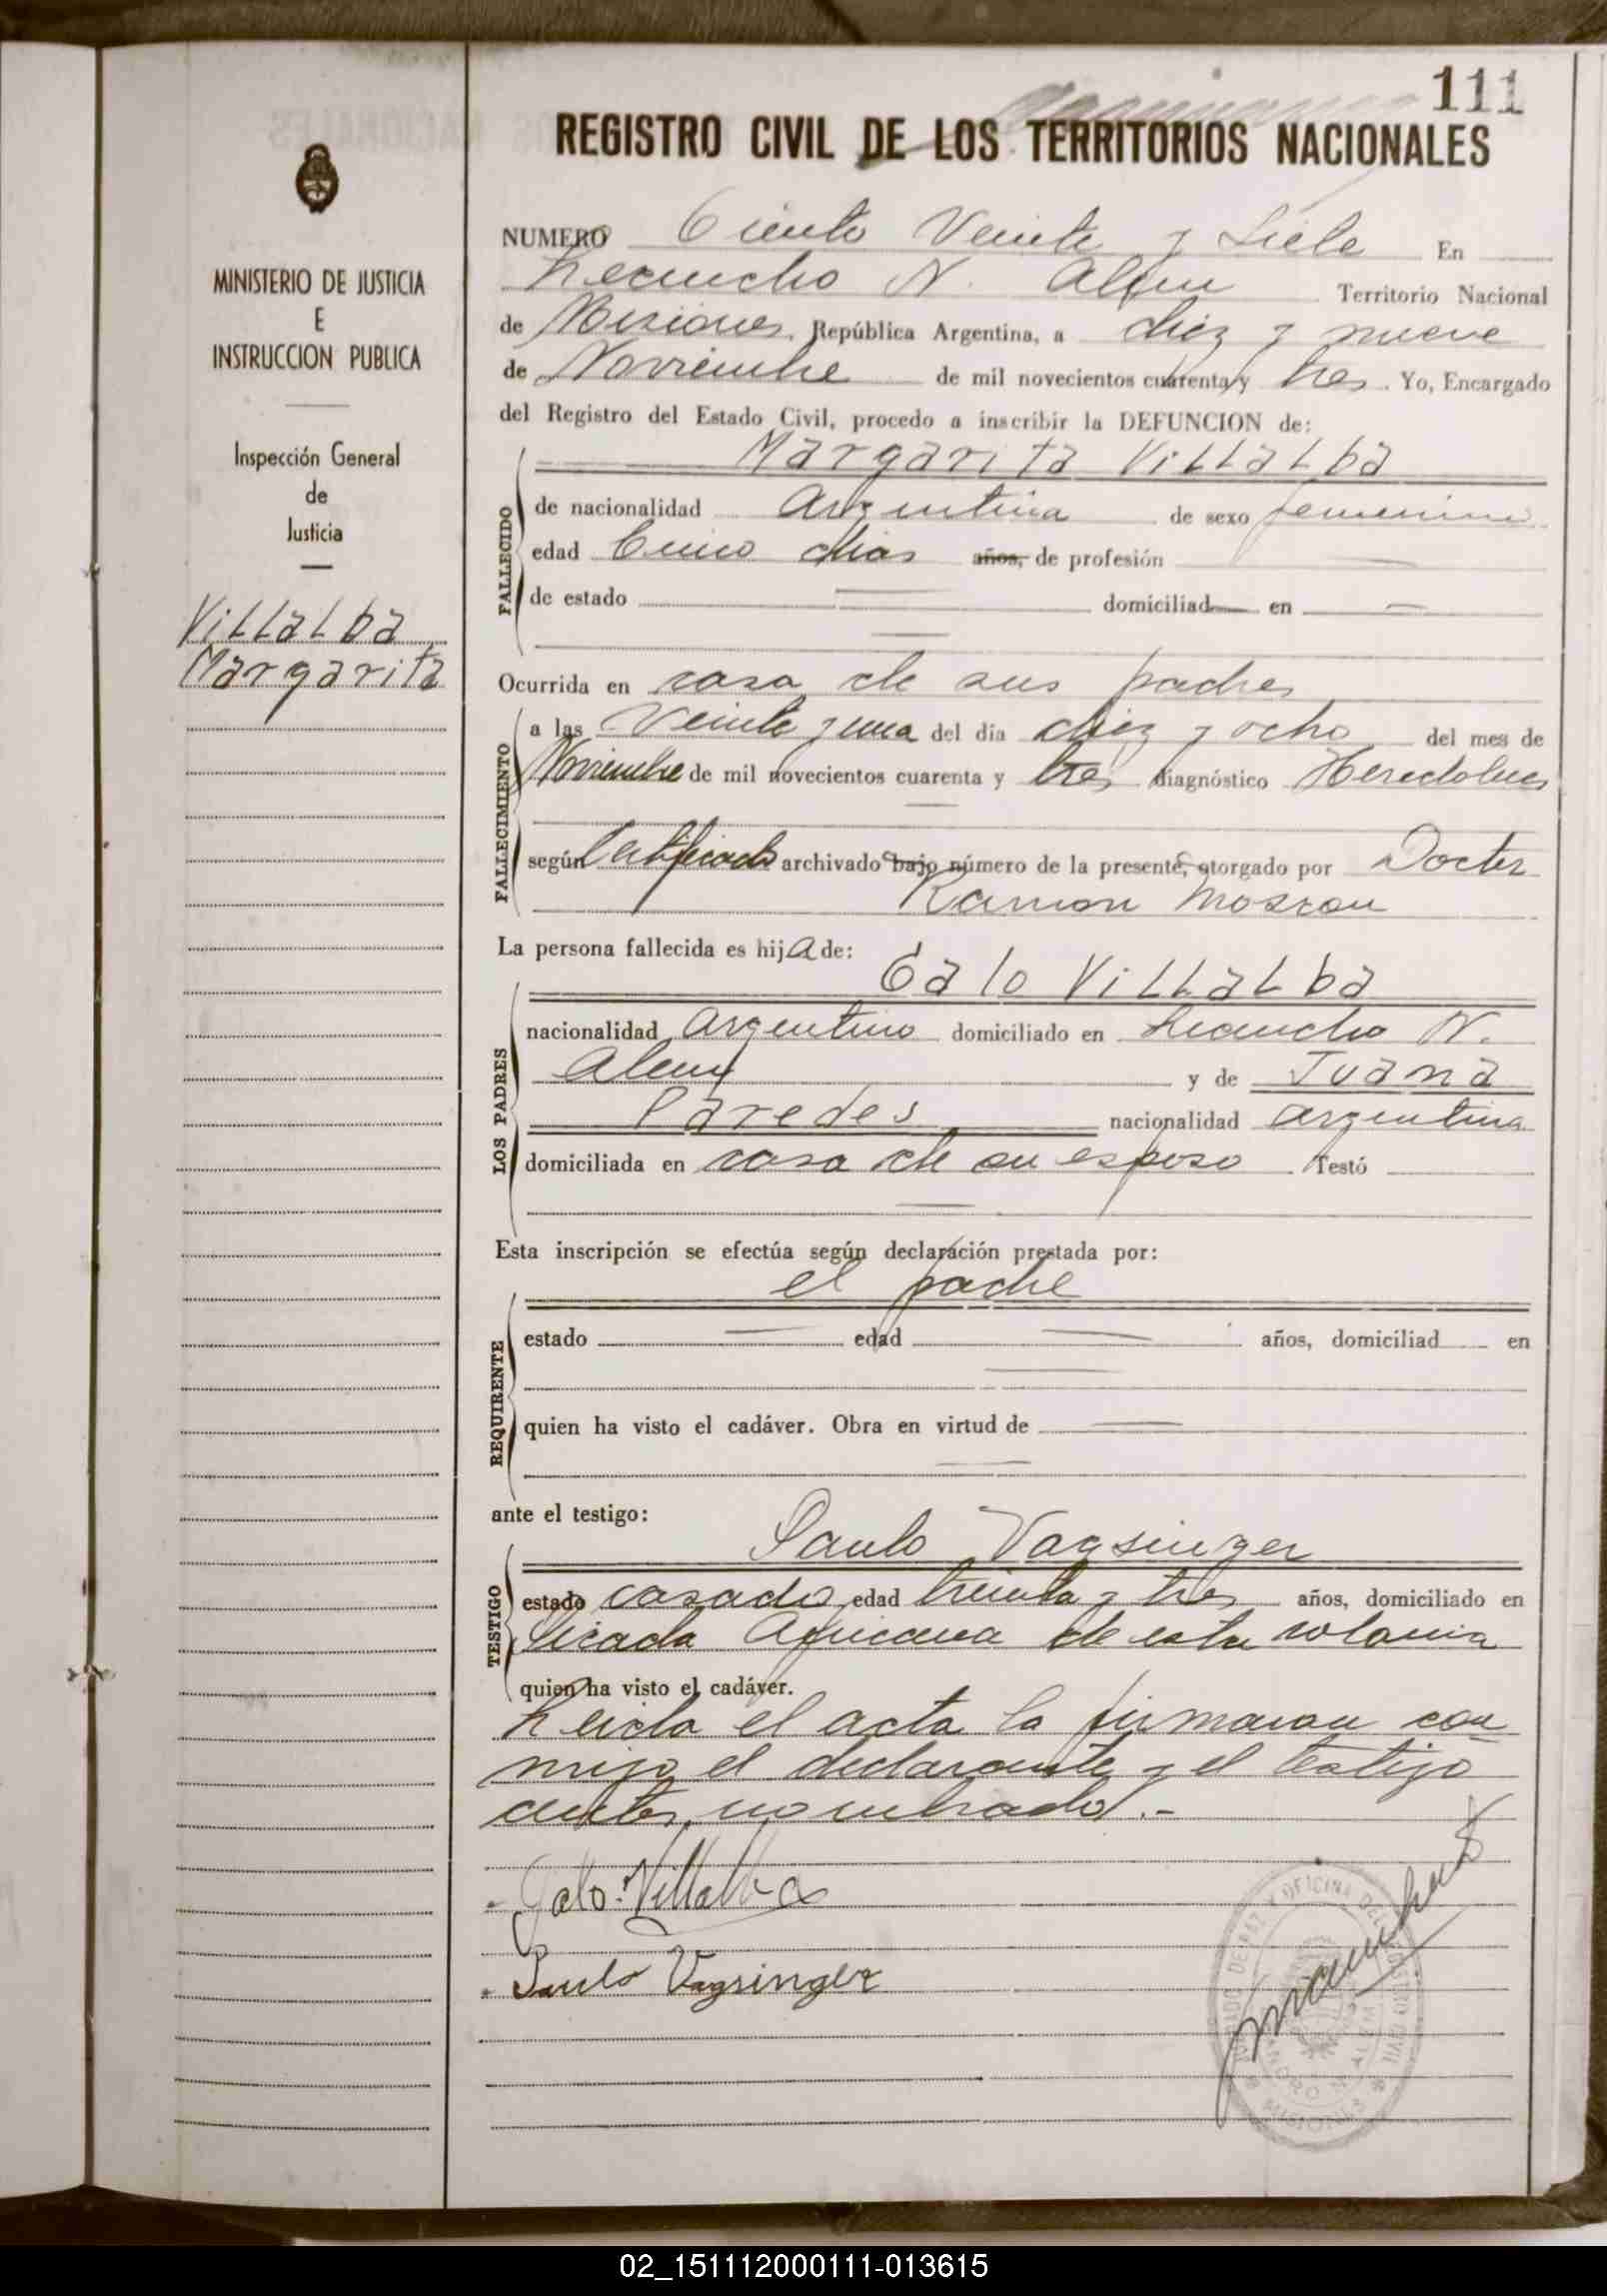 111
REGISTRO CIVIL DE LOS TERRITORIOS NACIONALES
MINISTERIO DE JUSTICIA
E
INSTRUCCION PUBLICA
Inspección General
de
Justicia
Villalba
Margarita
NUMERO Ciento Veinte y Siete En
Leandro N. Alem Territorio Nacional
de Misiones República Argentina, a diez y nueve
de Noviembre de mil novecientos cuarenta y tres. Yo, Encargado
del Registro del Estado Civil, procedo a inscribir la DEFUNCION de:
Margarita Villalba
FALLECIDO
de nacionalidad Argentina de sexo femenino
edad Cinco dias años, de profesión —
de estado — domiciliad— en —
Ocurrida en casa de sus padres
FALLECIMIENTO
a las Veinte y una del día diez y ocho del mes de
Noviembre de mil novecientos cuarenta y tres diagnóstico
según Certificado archivado bajo número de la presente, otorgado por Doctor
Ramon
La persona fallecida es hija de:
Galo Villalba
LOS PADRES
nacionalidad Argentino domiciliado en Leandro N.
Alem y de Juana
Paredes nacionalidad argentina
domiciliada en casa de su esposo Testó
Esta inscripción se efectúa según declaración prestada por:
el padre
REQUIRENTE
estado — edad — años, domiciliad en
quien ha visto el cadáver. Obra en virtud de —
ante el testigo:
Paulo Vagsinger
TESTIGO
estado casado edad treinta y tres años, domiciliado en
Picada Africana de esta colonia
quien ha visto el cadáver.
Leida el acta la firmaron con
migo el declarante y el testigo
antes nombrado.-
Galo Villalba
Paulo Vagsinger
JUZGADO DE PAZ Y OFICINA DEL REGISTRO CIVIL
LEANDRO N. ALEM
MISIONES
02_151112000111-013615